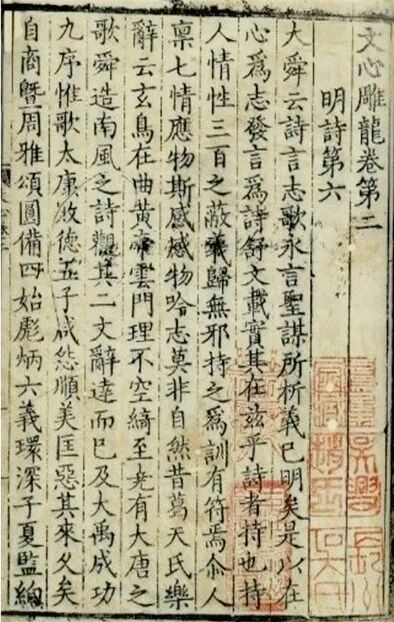 文心雕龍卷第二
明詩第六
大舜云詩言志歌永言聖謀所析義已明矣是以在
心爲志發言爲詩舒文載實其在兹乎詩者持也持
人情性三百之蔽義歸無邪持之爲訓有符焉尒人
禀七情應物斯感感物吟志莫非自然昔葛天氏樂
辭云玄鳥在曲黄帝雲門理不空綺至堯有大唐之
歌舜造南風之詩觀其二文辭達而已及大禹成功
九序惟歌太康敗德五子咸怨順美匡惡其來久矣
自商暨周雅頌圓備四始彪炳六義環深子夏監絢